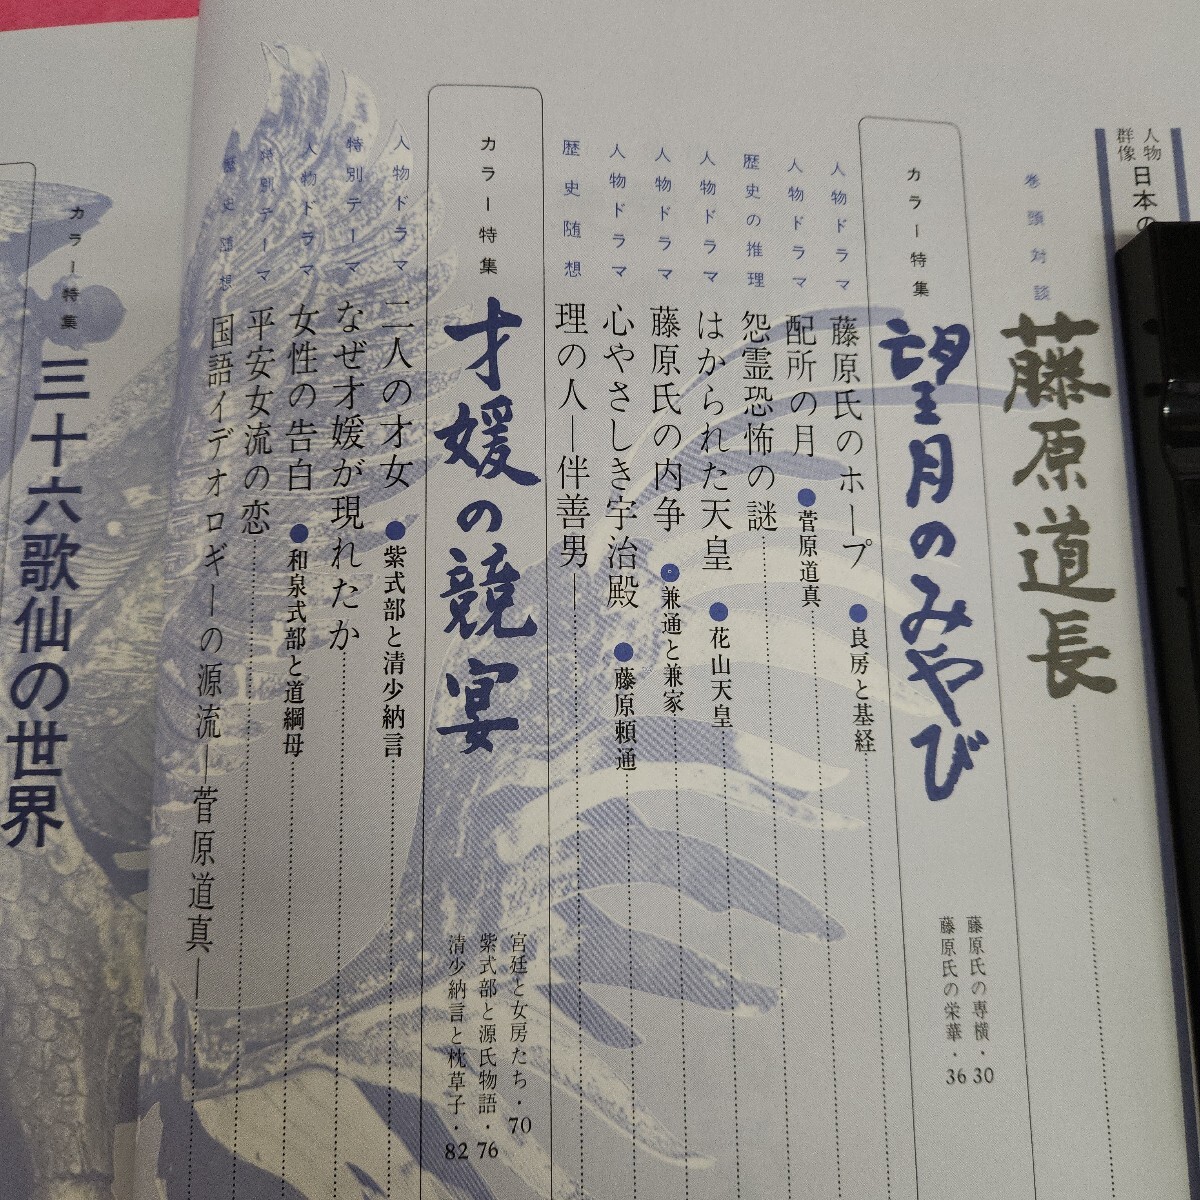 人物
群像
日本の
巻頭対談
藤原道長
カラー特集
望月のみやび
藤原氏の専横・30
藤原氏の栄華・36
人物ドラマ
藤原氏のホープ ●良房と基経
人物ドラマ
配所の月 ●菅原道真
歴史の推理
怨霊恐怖の謎
人物ドラマ
はかられた天皇 ●花山天皇
人物ドラマ
藤原氏の内争 ●兼通と兼家
人物ドラマ
心やさしき宇治殿 ●藤原頼通
歴史随想
理の人―伴善男―
カラー特集
才媛の競宴
宮廷と女房たち・70
紫式部と源氏物語・76
清少納言と枕草子・82
人物ドラマ
二人の才女 ●紫式部と清少納言
特別テーマ
なぜ才媛が現れたか
人物ドラマ
女性の告白 ●和泉式部と道綱母
特別テーマ
平安女流の恋
歴史随想
国語イデオロギーの源流―菅原道真―
カラー特集
三十六歌仙の世界